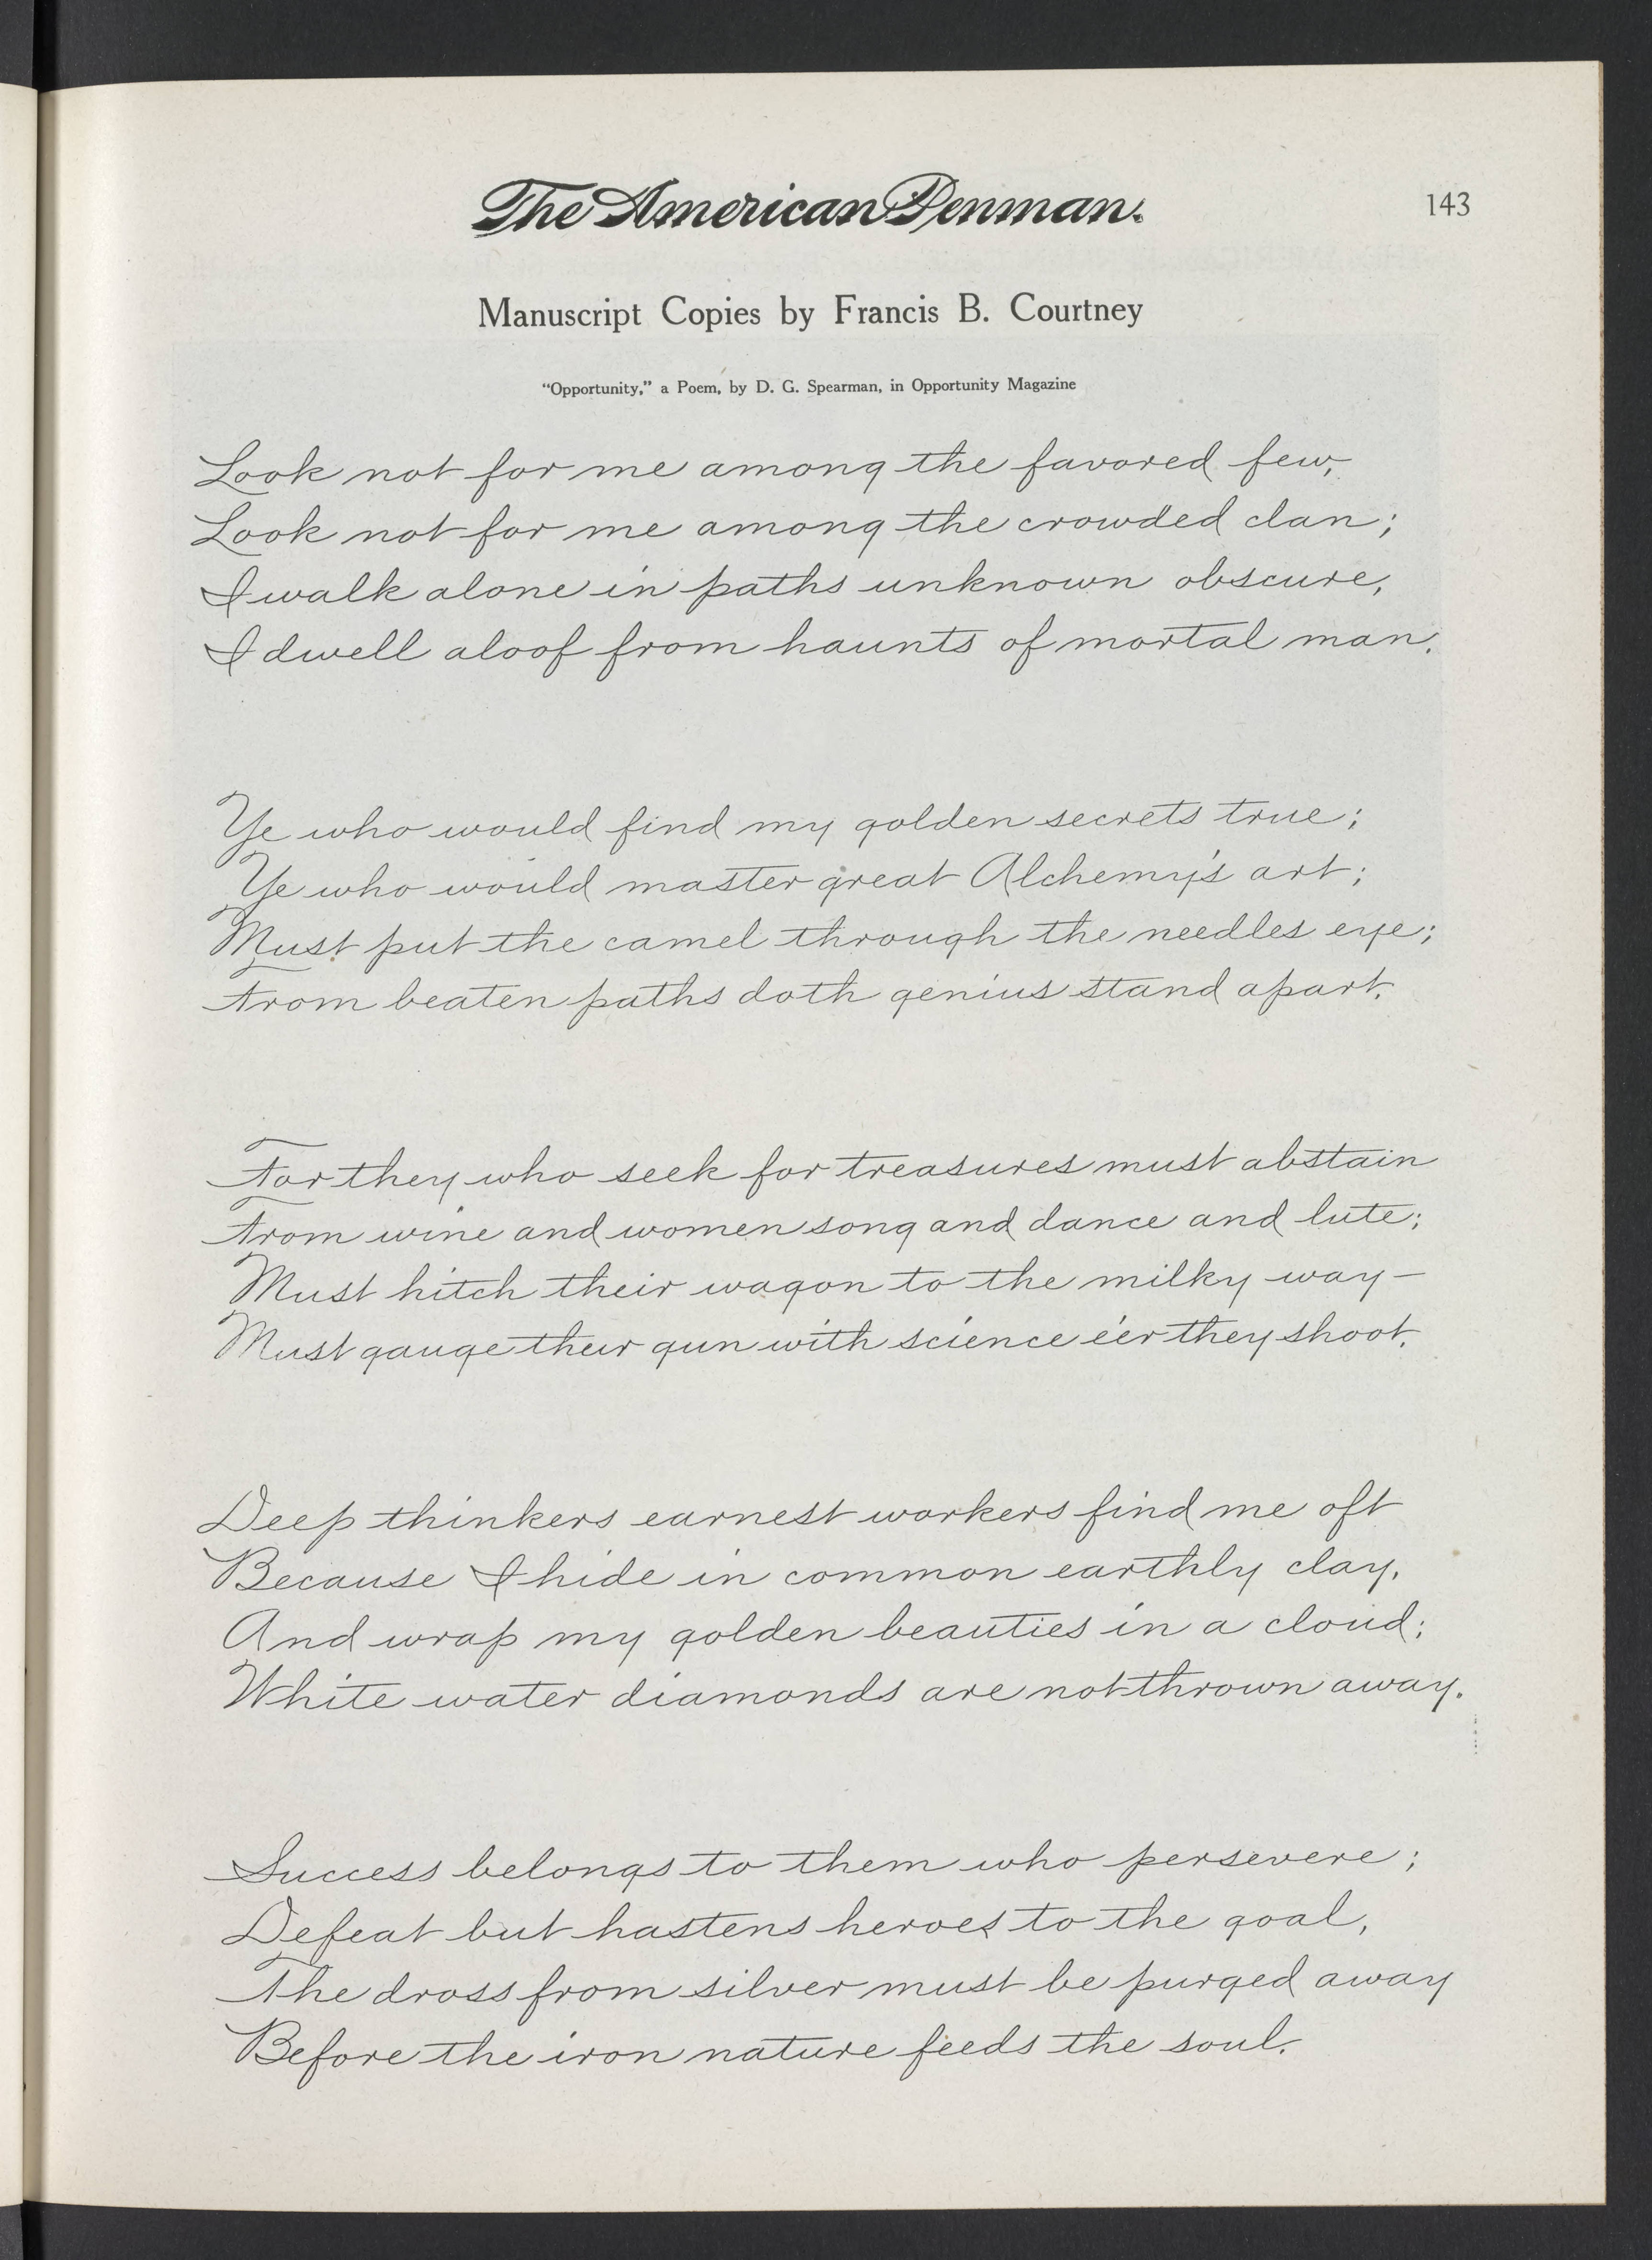 The American Penman.
143
Manuscript Copies by Francis B. Courtney
“Opportunity,” a Poem, by D. G. Spearman, in Opportunity Magazine
Look not for me among the favored few,
Look not for me among the crowded clan;
I walk alone in paths unknown obscure,
I dwell aloof from haunts of mortal man.
Ye who would find my golden secrets true;
Ye who would master great Alchemy's art;
Must put the camel through the needles eye;
From beaten paths doth genius stand apart.
For they who seek for treasures must abstain
From wine and women song and dance and lute;
Must hitch their wagon to the milky way—
Must gauge their gun with science e'er they shoot.
Deep thinkers earnest workers find me oft
Because I hide in common earthly clay,
And wrap my golden beauties in a cloud;
White water diamonds are not thrown away.
Success belongs to them who persevere;
Defeat but hastens heroes to the goal,
The dross from silver must be purged away
Before the iron nature feeds the soul.